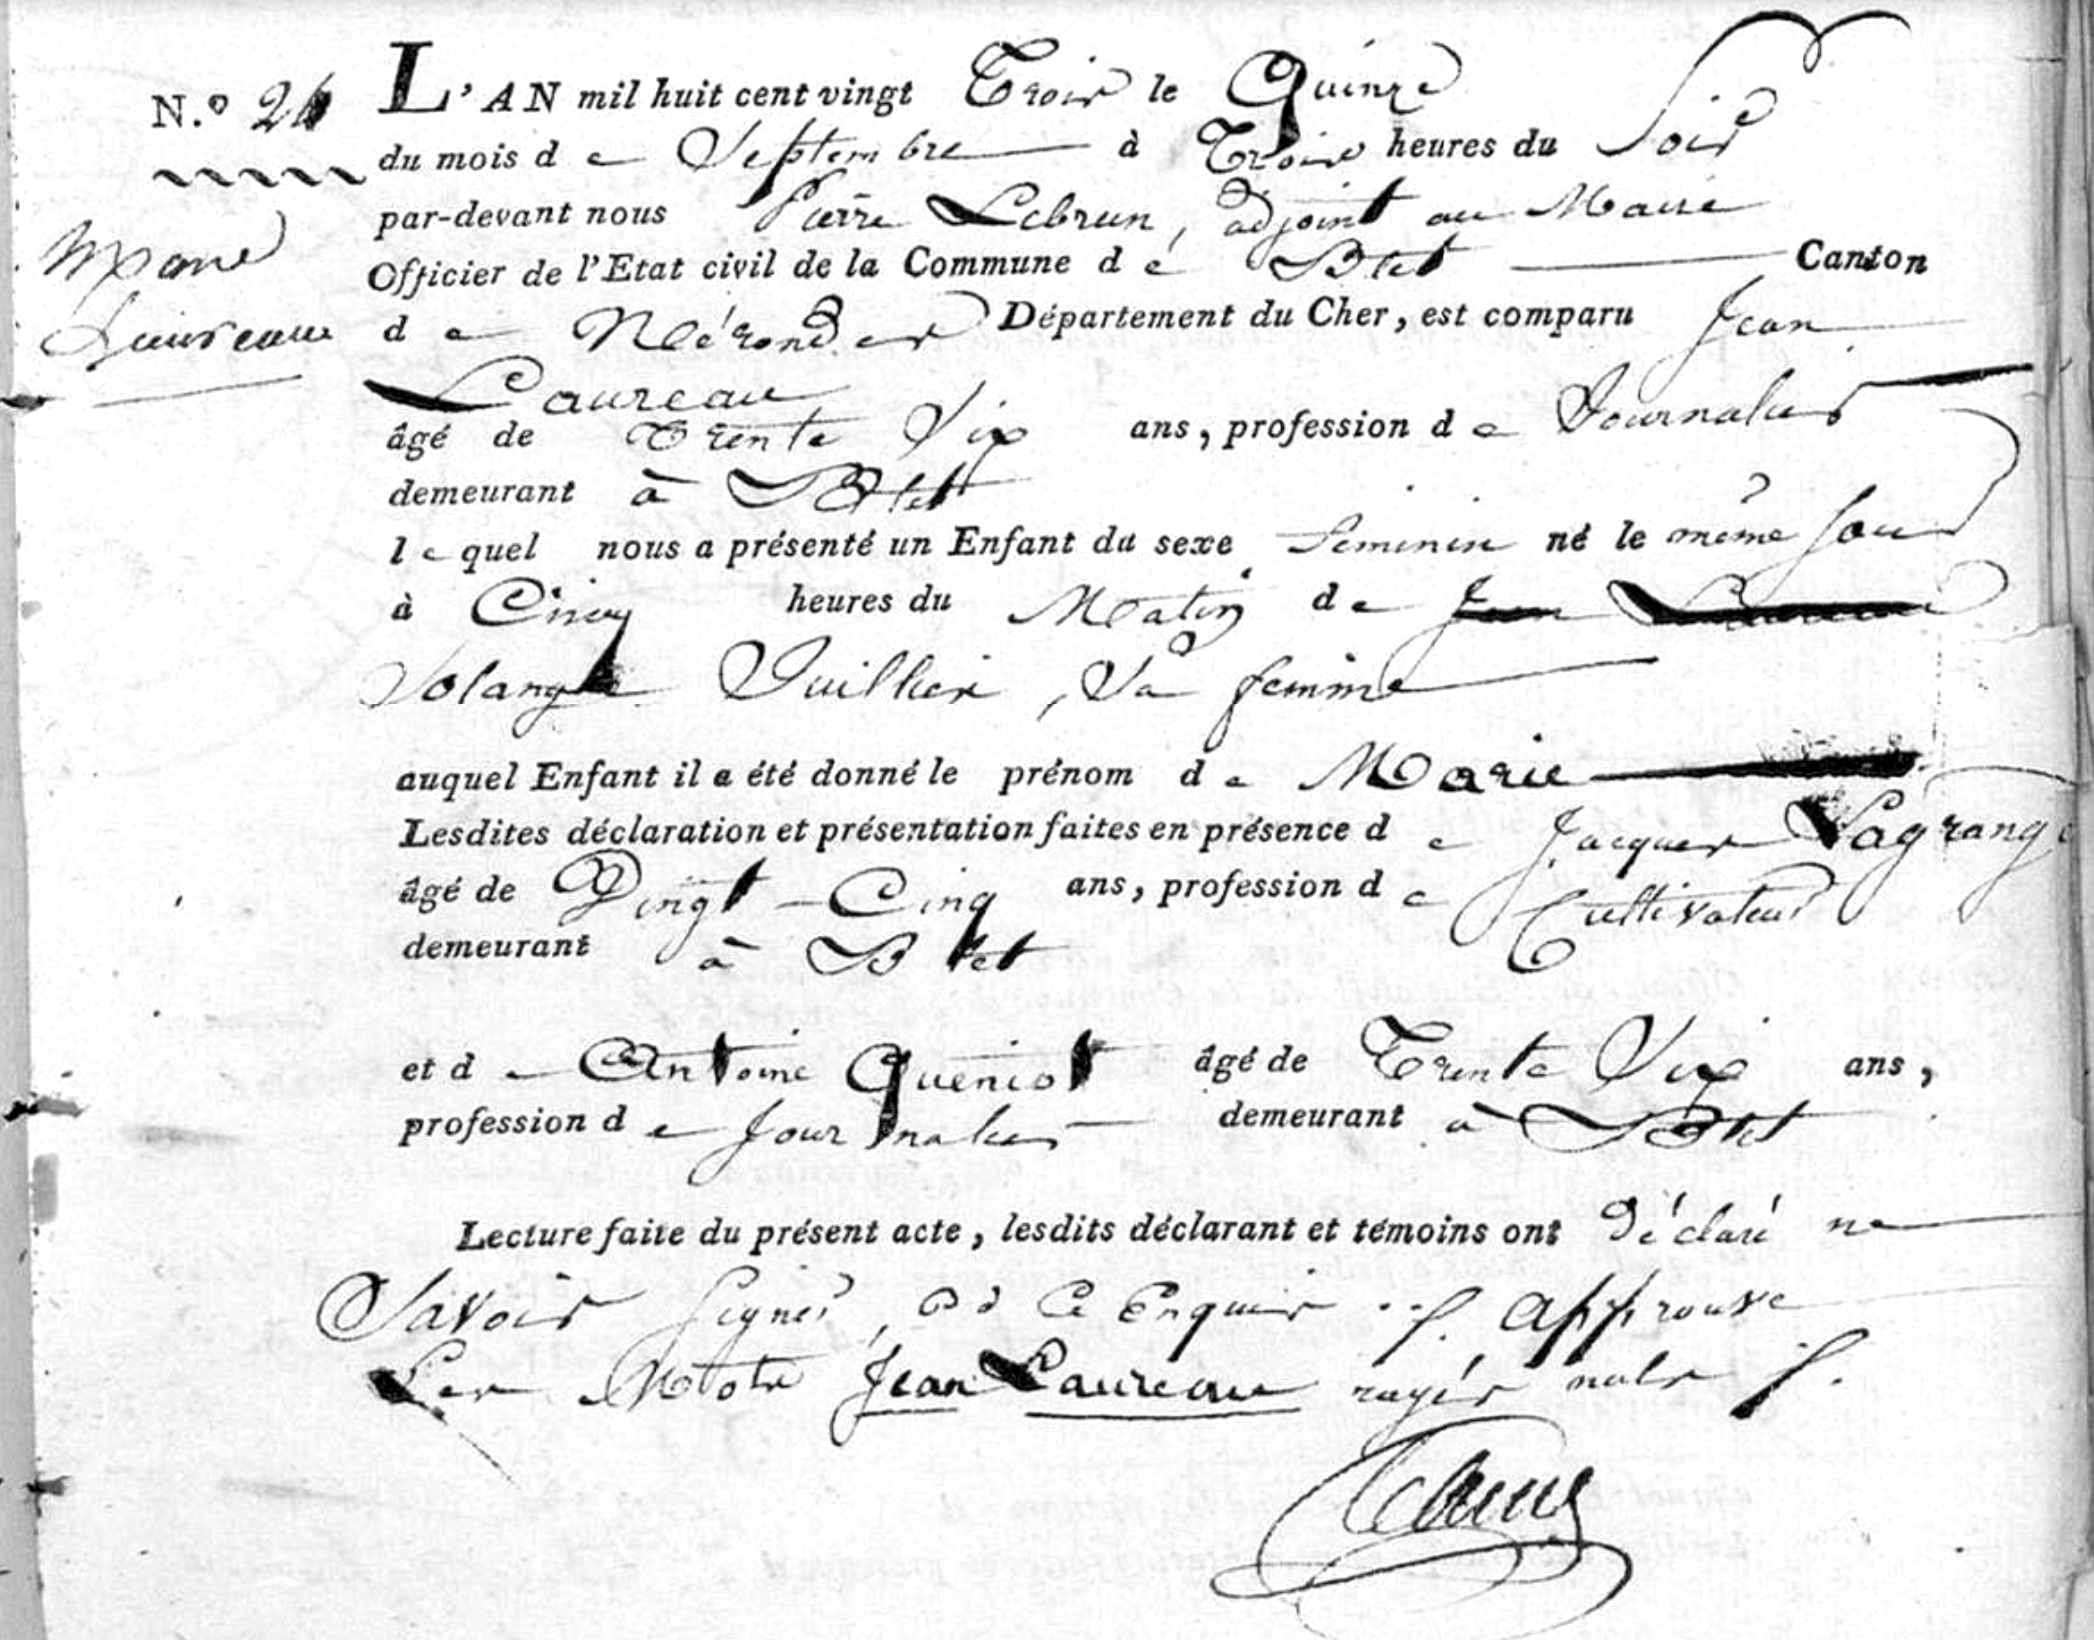 N.º 26 L'AN mil huit cent vingt Trois le Quinze
du mois de Septembre à Trois heures du Soir
par-devant nous Pierre Lebrun, adjoint au Maire
Marie
Officier de l'Etat civil de la Commune de Blet Canton
Laureau
de Nérondes Département du Cher, est comparu Jean
Laureau
âgé de Trente Six ans, profession de Journalier
demeurant à Blet
lequel nous a présenté un Enfant du sexe feminin né le même jour
à Cinq heures du Matin de Jean Laureau
Solange Vuillier, Sa femme
auquel Enfant il a été donné le prénom de Marie
Lesdites déclaration et présentation faites en présence de Jacques Lagrange
âgé de Vingt-Cinq ans, profession de Cultivateur
demeurant à Blet
et de Antoine Quéniot âgé de Trente Six ans,
profession de Journalier demeurant à Blet
Lecture faite du présent acte, lesdits déclarant et témoins ont déclaré ne
Savoir Signer, de ce Enquis ../. approuve
Les Mots Jean Laureau rayés nuls /.
Lebrun